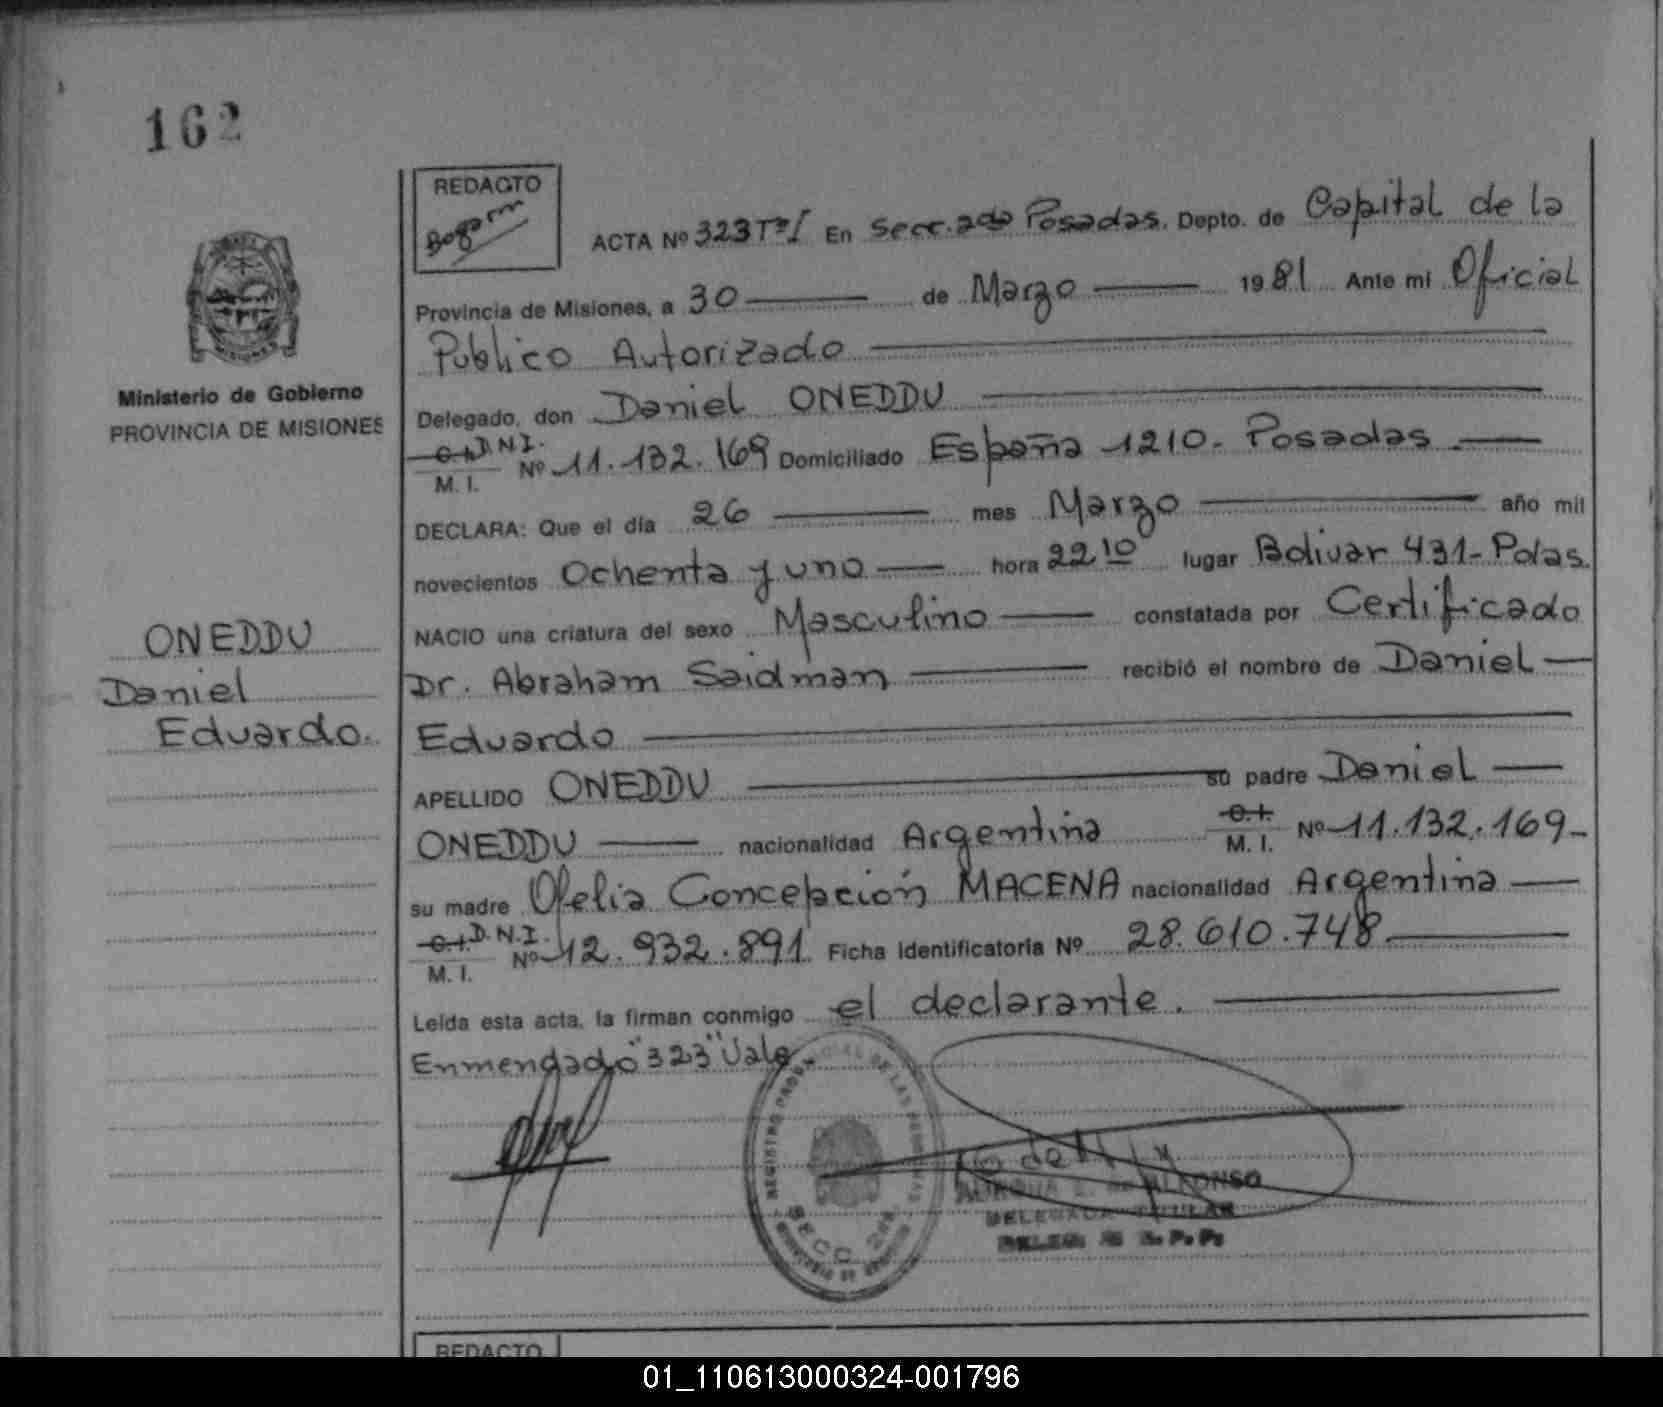 162
REDACTO
ACTA Nº 323 Tº I En Secc. 2da Posadas. Depto. de Capital de la
Provincia de Misiones, a 30 de Marzo 1981 Ante mi Oficial
Publico Autorizado
Ministerio de Gobierno
PROVINCIA DE MISIONES
Delegado, don Daniel ONEDDU
C.I. D.N.I. M.I. Nº 11.132.169 Domiciliado España 1210. Posadas
DECLARA: Que el día 26 mes Marzo año mil
novecientos Ochenta y uno hora 22 10 lugar Bolivar 431- Pdas.
NACIO una criatura del sexo Masculino constatada por Certificado
ONEDDU
Daniel
Eduardo.
Dr. Abraham Saidman recibió el nombre de Daniel
Eduardo
APELLIDO ONEDDU su padre Daniel
ONEDDU nacionalidad Argentina C.I. M.I. Nº 11.132.169-
su madre Ofelia Concepción MACENA nacionalidad Argentina
C.I. D.N.I. M.I. Nº 12.932.891 Ficha Identificatoria Nº 28.610.748
Leída esta acta, la firman conmigo el declarante.
Enmendado "323" Vale.
REGISTRO PROVINCIAL DE LAS PERSONAS
SECC. 2da
DE ALFONSO
DELEGADA TITULAR
REDACTO
01_110613000324-001796